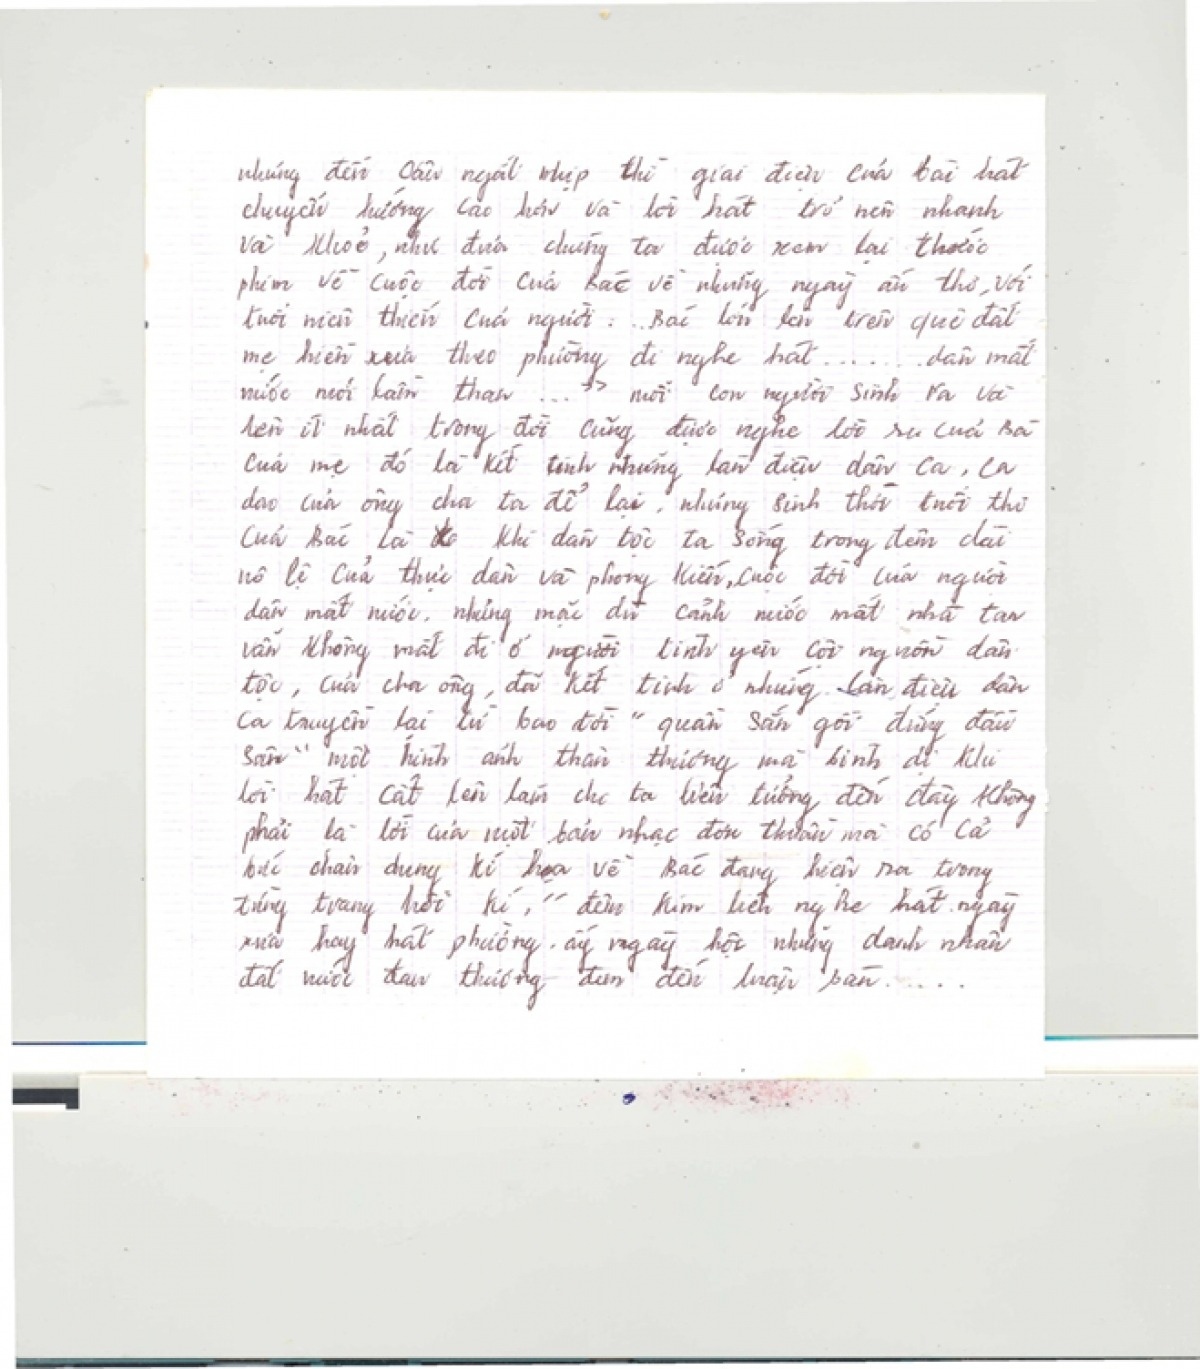 nhưng đến câu ngắt nhịp thì giai điệu của bài hát
chuyển hướng cao hơn và lời hát trở nên nhanh
và khoẻ, như đưa chúng ta được xem lại thước
phim về cuộc đời của Bác về những ngày ấu thơ, với
tuổi niên thiếu của người: ..Bác lớn lên trên quê đất
mẹ hiền xưa theo phường đi nghe hát ....... dân mất
nước nơi lầm than ..." mỗi con người sinh ra và
lên ít nhất trong đời cũng được nghe lời ru của Bà
của mẹ đó là kết tinh những làn điệu dân ca, ca
dao của ông cha ta để lại. nhưng sinh thời tuổi thơ
của Bác là khi dân tộc ta sống trong đêm dài
nô lệ của thực dân và phong kiến, cuộc đời của người
dân mất nước. nhưng mặc dù cảnh nước mất nhà tan
vẫn không mất đi ở người tình yêu cội nguồn dân
tộc, của cha ông, đã kết tinh ở những làn điệu dân
ca truyền lại từ bao đời " quần sắn gối đứng đầu
sân" một hình ảnh thân thương mà bình dị khi
lời hát cất lên làm cho ta liên tưởng đến đây không
phải là lời của một bản nhạc đơn thuần mà có cả
bức chân dung kí họa về Bác đang hiện ra trong
từng trang hồi kí, " đêm kim liên nghe hát ngày
xưa hay hát phường. ấy ngày hội những danh nhân
đất nước đau thương đưa đến luận bàn.....